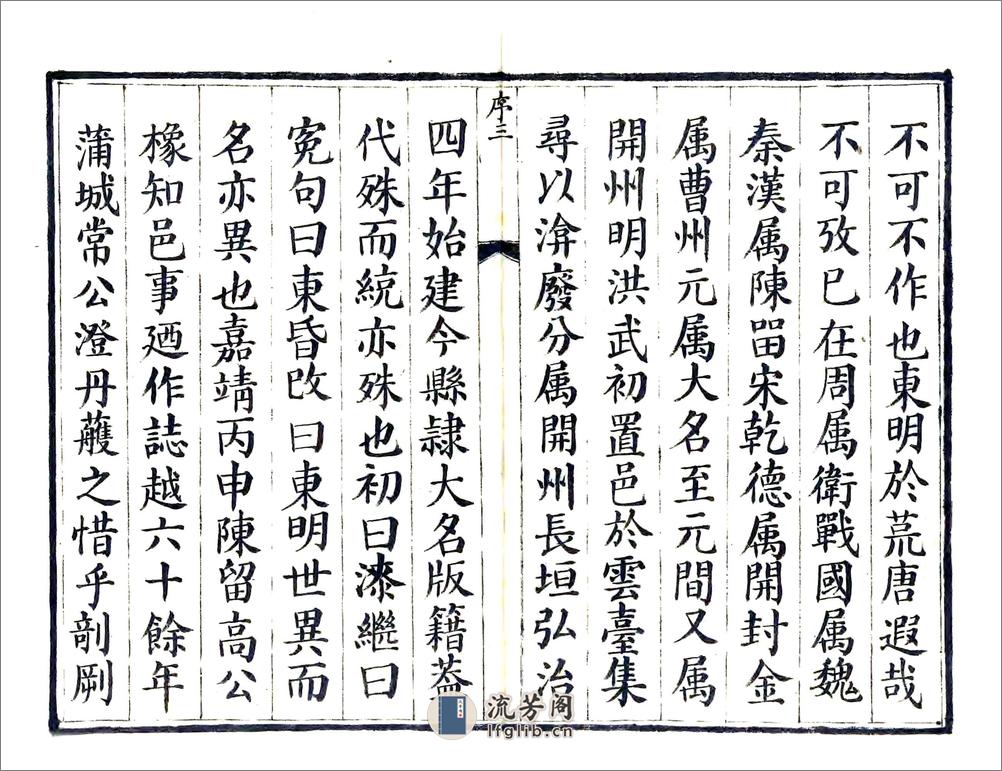 不可不作也東明於荒唐遐哉
不可攷已在周属衛戰國属魏
秦漢属陳畱宋乾德属開封金
属曹州元属大名至元間又属
開州明洪武初置邑於雲臺集
尋以渰廢分属開州長垣弘治
序三
四年始建今縣隷大名版籍葢
代殊而統亦殊也初曰漆繼曰
寃句曰東昏改曰東明世異而
名亦異也嘉靖丙申陳留高公
橡知邑事廼作誌越六十餘年
蒲城常公澄丹雘之惜乎剞劂
流芳阁
lfglib.cn